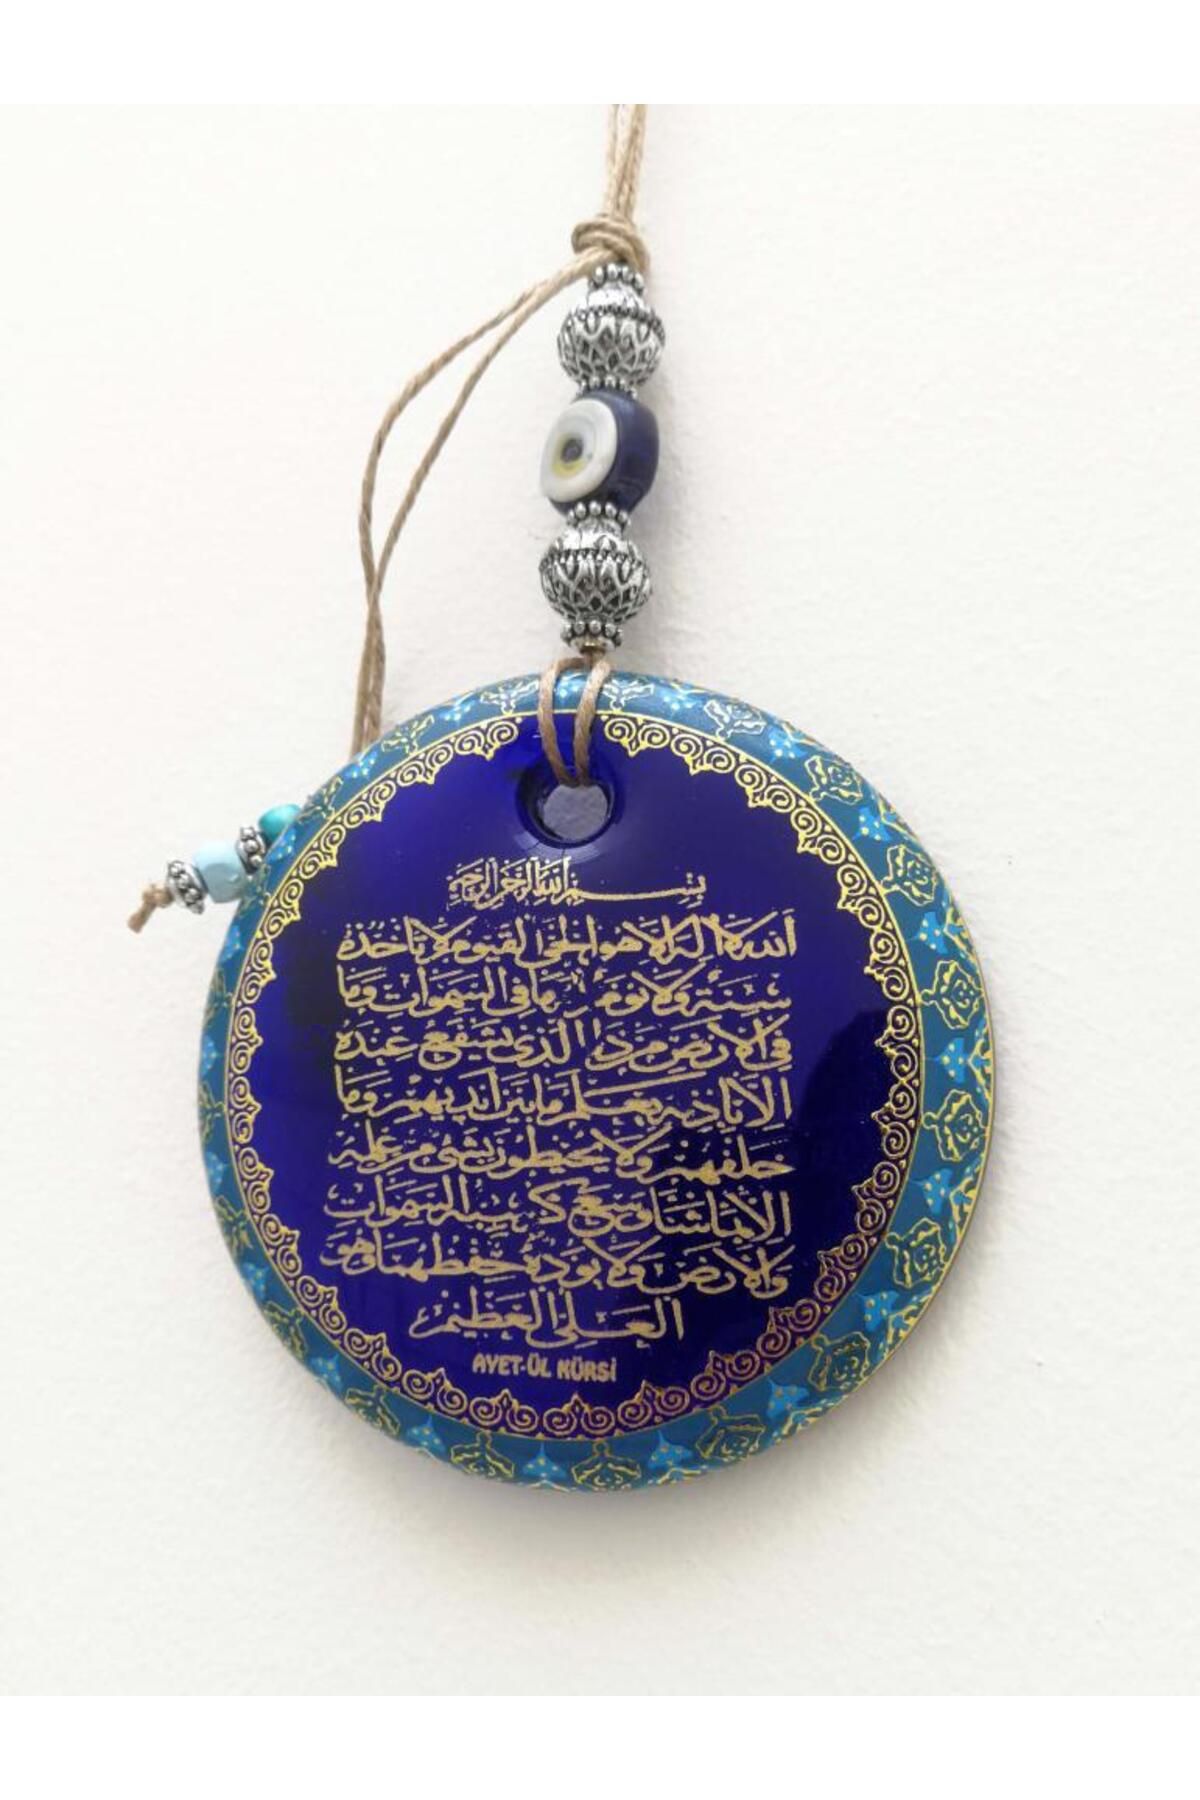 بِسْمِ اللهِ الرَّحْمٰنِ الرَّحِيمِ
اَللهُ لَا اِلٰهَ اِلَّا هُوَ الْحَىُّ الْقَيُّومُ لَا تَأْخُذُهُ
سِنَةٌ وَلَا نَوْمٌ لَهُ مَا فِى السَّمٰوَاتِ وَمَا
فِى الْاَرْضِ مَنْ ذَا الَّذِى يَشْفَعُ عِنْدَهُ
اِلَّا بِاِذْنِهِ يَعْلَمُ مَا بَيْنَ اَيْدِيهِمْ وَمَا
خَلْفَهُمْ وَلَا يُحِيطُونَ بِشَىْءٍ مِنْ عِلْمِهِ
اِلَّا بِمَا شَاءَ وَسِعَ كُرْسِيُّهُ السَّمٰوَاتِ
وَالْاَرْضَ وَلَا يَؤُدُهُ حِفْظُهُمَا وَهُوَ
الْعَلِىُّ الْعَظِيمُ
AYET-ÜL KÜRSİ